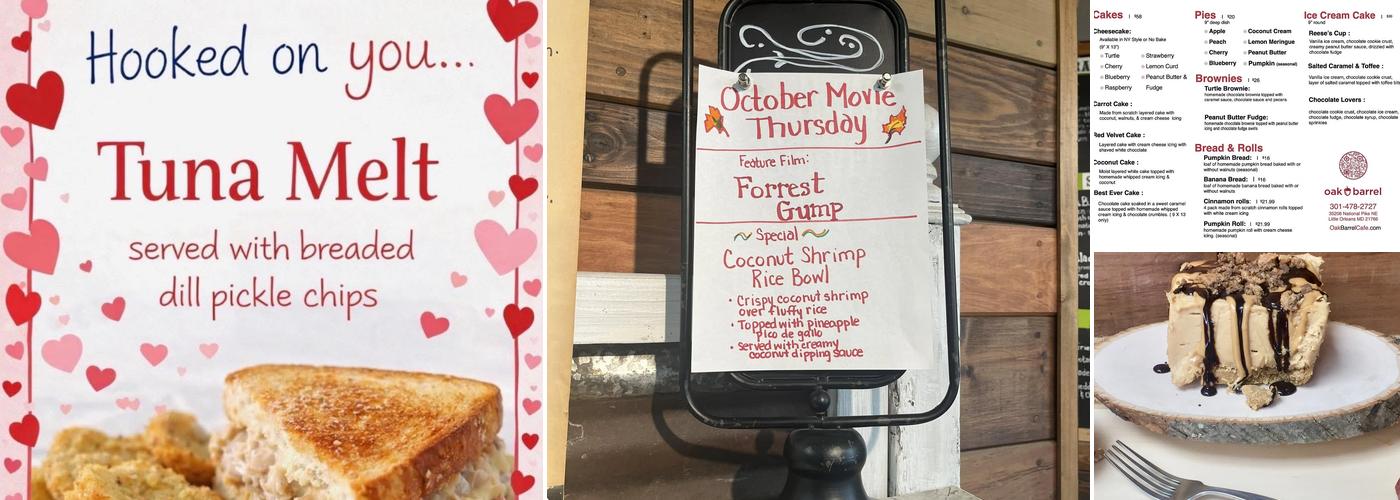 Hooked on you...
Tuna Melt
served with breaded
dill pickle chips
October Movie
Thursday
Feature Film:
Forrest
Gump
Special
Coconut Shrimp
Rice Bowl
• Crispy coconut shrimp
over fluffy rice
• Topped with pineapple
pico de gallo
• served with creamy
coconut dipping sauce
Cakes | $58
Cheesecake:
Available in NY Style or No Bake
(9" X 13")
Turtle
Cherry
Blueberry
Raspberry
Strawberry
Lemon Curd
Peanut Butter &
Fudge
Carrot Cake :
Made from scratch layered cake with
coconut, walnuts, & cream cheese icing
Red Velvet Cake :
Layered cake with cream cheese icing with
shaved white chocolate
Coconut Cake :
Moist layered white cake topped with
homemade whipped cream icing &
coconut
Best Ever Cake :
Chocolate cake soaked in a sweet caramel
sauce topped with homemade whipped
cream icing & chocolate crumbles. ( 9 X 13
only)
Pies | $20
9" deep dish
Apple
Peach
Cherry
Blueberry
Coconut Cream
Lemon Meringue
Peanut Butter
Pumpkin (seasonal)
Brownies | $26
Turtle Brownie:
homemade chocolate brownie topped with
caramel sauce, chocolate sauce and pecans
Peanut Butter Fudge:
homemade chocolate brownie topped with peanut butter
icing and chocolate fudge swirls
Bread & Rolls
Pumpkin Bread: | $16
loaf of homemade pumpkin bread baked with or
without walnuts (seasonal)
Banana Bread: | $16
loaf of homemade banana bread baked with or
without walnuts
Cinnamon rolls: | $21.99
4 pack made from scratch cinnamon rolls topped
with white cream icing
Pumpkin Roll: | $21.99
homemade pumpkin roll with cream cheese
icing. (seasonal)
Ice Cream Cake |
9" round
Reese's Cup :
Vanilla ice cream, chocolate cookie crust,
creamy peanut butter sauce, drizzled with
chocolate fudge
Salted Caramel & Toffee :
Vanilla ice cream, chocolate cookie crust,
layer of salted caramel topped with toffee bits
Chocolate Lovers :
chocolate cookie crust, chocolate ice cream,
chocolate fudge, chocolate syrup, chocolate
sprinkles
oak barrel
301-478-2727
35208 National Pike NE
Little Orleans MD 21766
OakBarrelCafe.com